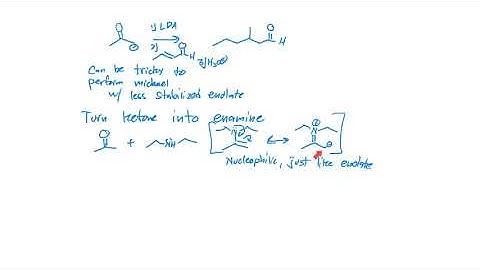 1) LDA
O
O
2) H
H
3) H3O⊕
⊖
Can be tricky to
perform michael
w/ less stabilized enolate
Turn ketone into enamine
O
+ NH
N
⊕
N
⊖
Nucleophilic, just like enolate